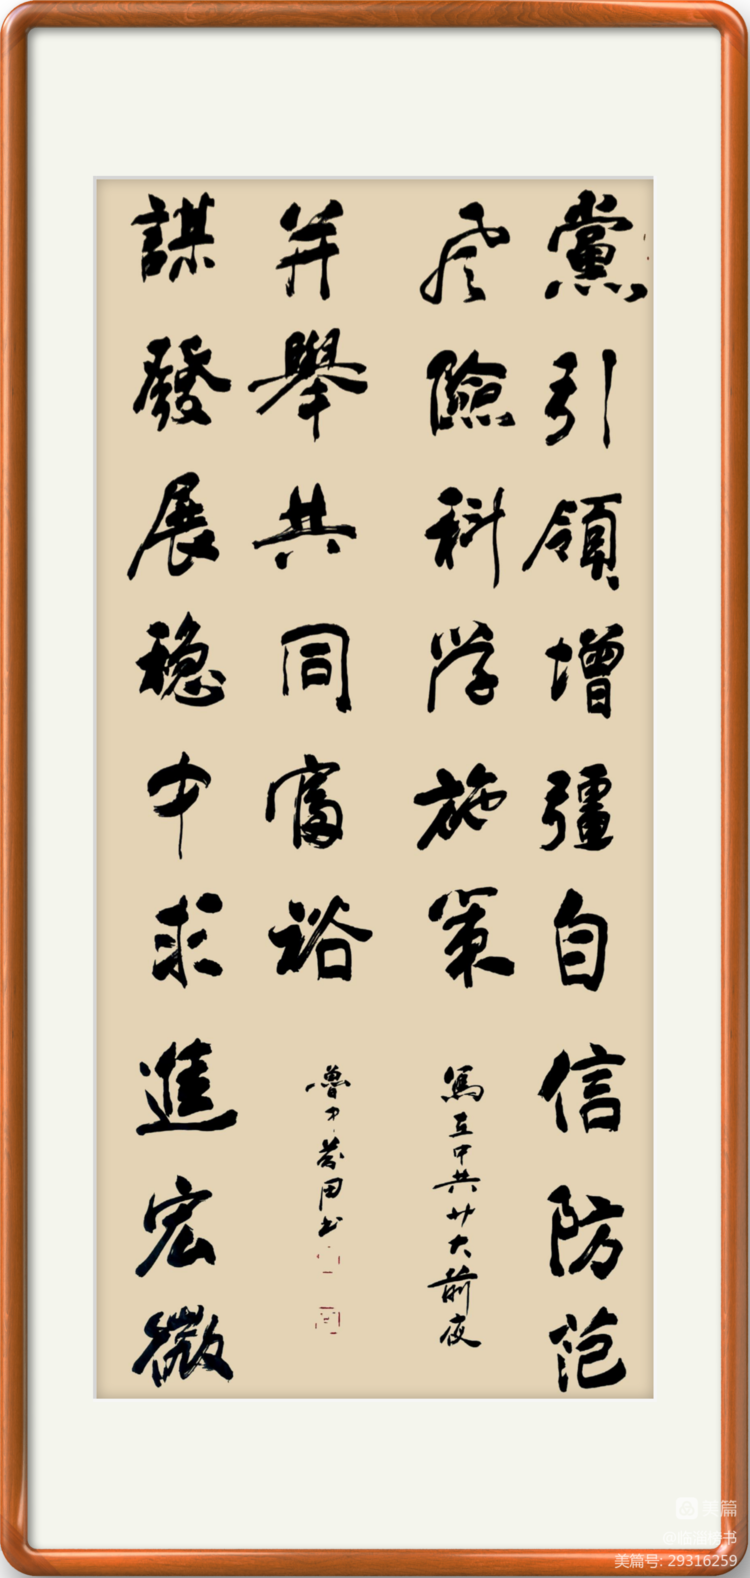 黨引領增彊自信防范
风險科学施策
謀發展稳中求進宏微
并舉共同富裕
寫中共廿大前夜
魯中田书
美篇
美篇号: 29316259